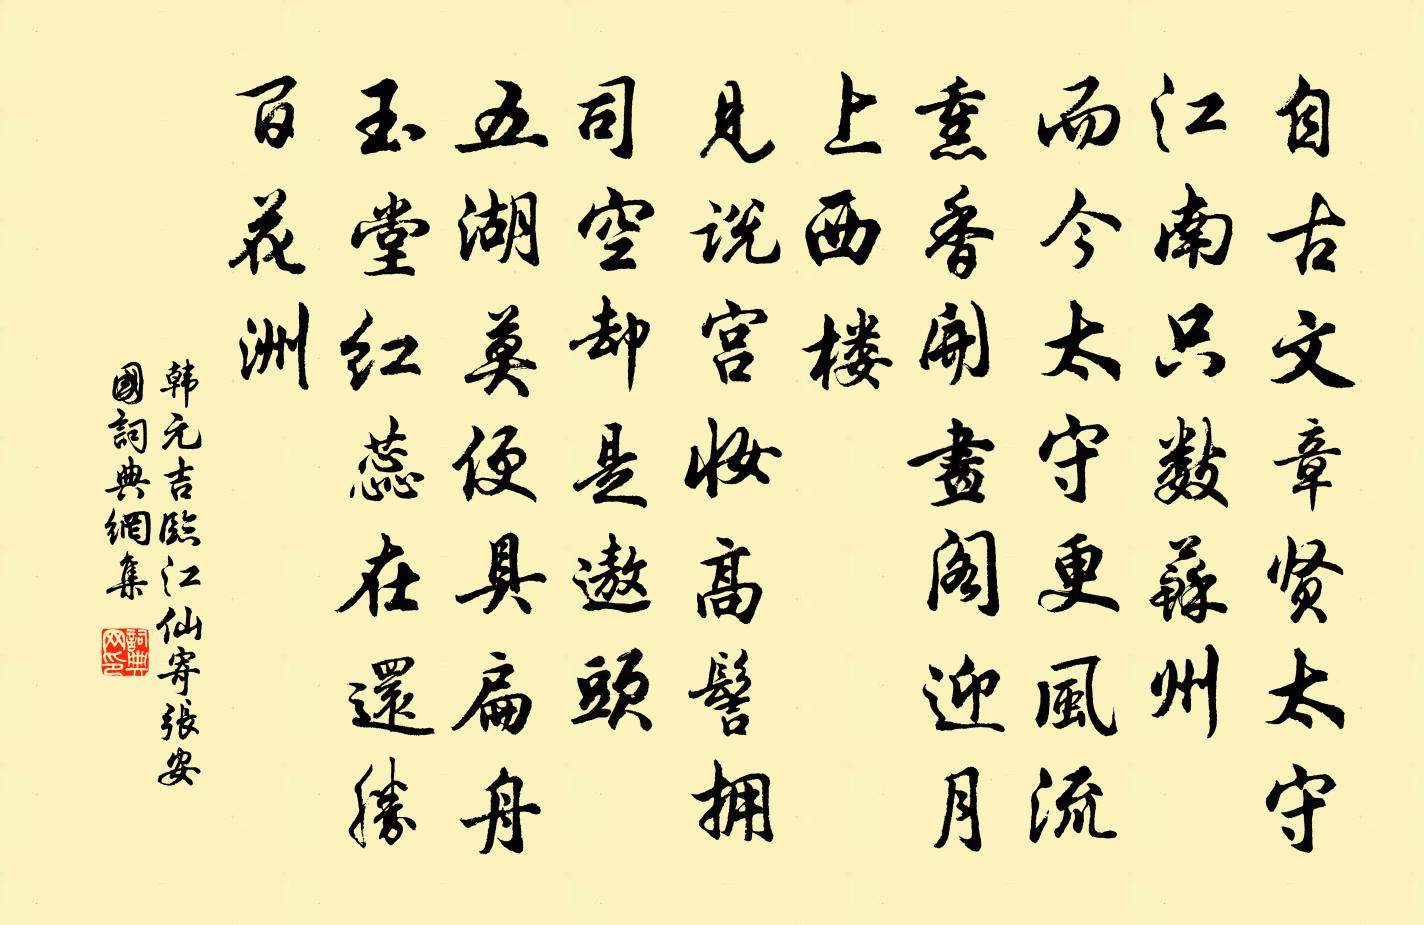 自古文章贤太守
江南只数蘇州
而今太守更風流
熏香開畫阁迎月
上西楼
見说宫妆高髻拥
司空却是遨頭
五湖莫便具扁舟
玉堂红蕊在還勝
百花洲
韩元吉臨江仙寄張安
國詞典網集
詞典
网印